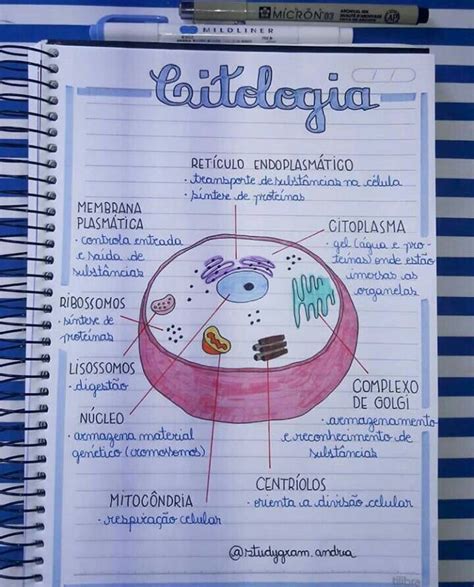 MICRON 03
MILDLINER
Citologia
RETÍCULO ENDOPLASMÁTICO
· transporte de substâncias na célula
· síntese de proteínas
MEMBRANA
PLASMÁTICA
· controla entrada
e saída de
substâncias
CITOPLASMA
· gel (água e pro-
teínas) onde estão
imersas as
organelas
RIBOSSOMOS
· síntese de
proteínas
LISOSSOMOS
· digestão
NÚCLEO
· armazena material
genético (cromossomos)
COMPLEXO
DE GOLGI
· armazenamento
e reconhecimento de
substâncias
MITOCÔNDRIA
· respiração celular
CENTRÍOLOS
· orienta a divisão celular
@studygram.andria
tilibra